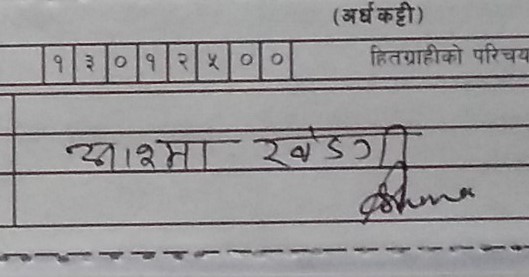 (अर्धकट्टी)
१३०१२५०० हितग्राहीको परिचय
आश्मा खड्गी